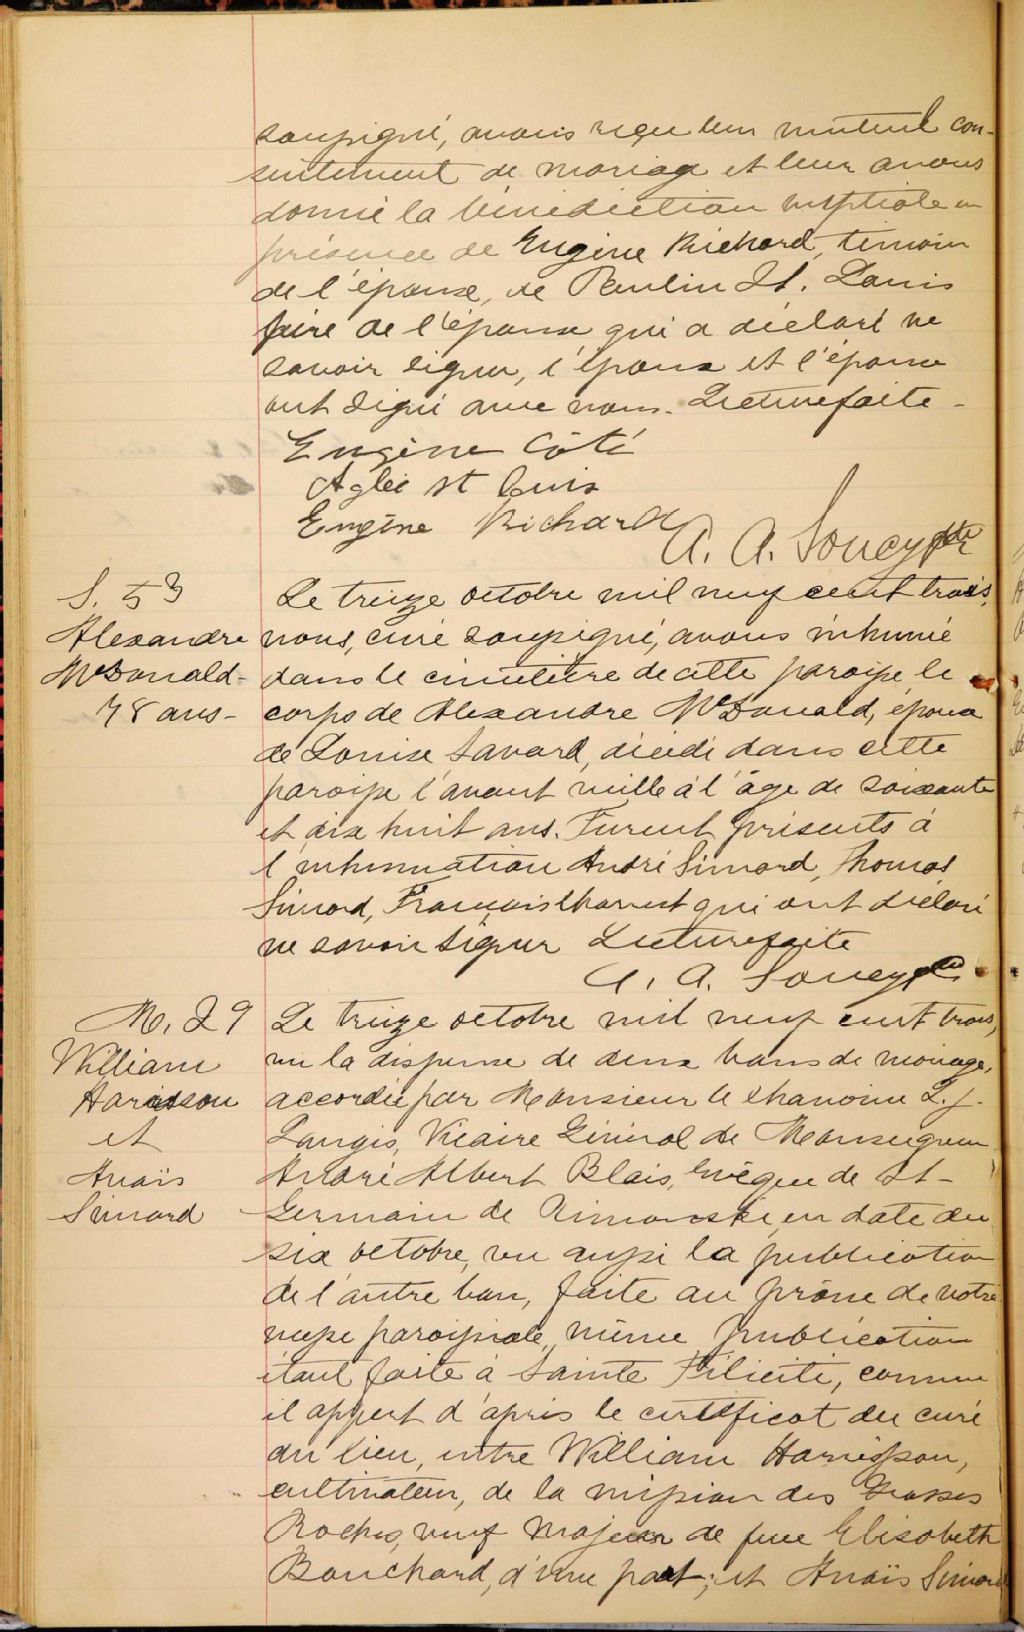 soussigné, avons reçu leur mutuel con-
sentement de mariage et leur avons
donné la bénédiction nuptiale en
présence de Eugène Richard, témoin
de l'épouse, de Paulin St. Louis
père de l'épouse qui a déclaré ne
savoir signer, l'époux et l'épouse
ont signé avec nous. Lecture faite -
Eugène Côté
Aglée st Luis
Eugène Richard
A. A. Soucy ptre
S. 53
Alexandre
McDonald -
78 ans -
Le treize octobre mil neuf cent trois,
nous, curé soussigné, avons inhumé
dans le cimetière de cette paroisse le
corps de Alexandre McDonald, époux
de Louise Savard, décédé dans cette
paroisse l'avant veille à l'âge de soixante
et dix huit ans. Furent présents à
l'inhumation André Simard, Thomas
Simard, François Charest qui ont déclaré
ne savoir signer Lecture faite
A. A. Soucy ptre
M. 29
William
Harisson
et
Anaïs
Simard
Le treize octobre mil neuf cent trois,
vu la dispense de deux bans de mariage,
accordée par Monsieur le chanoine L. J.
Langis, Vicaire Général de Monseigneur
André Albert Blais, Evêque de St-
Germain de Rimouski, en date du
six octobre, vu aussi la publication
de l'autre ban, faite au prône de notre
messe paroissiale, même publication
étant faite à Sainte Félicité, comme
il appert d'après le certificat du curé
du lieu, entre William Harrisson,
cultivateur, de la mission des Grosses
Roches, veuf majeur de feue Elisabeth
Bouchard, d'une part; et Anaïs Simard